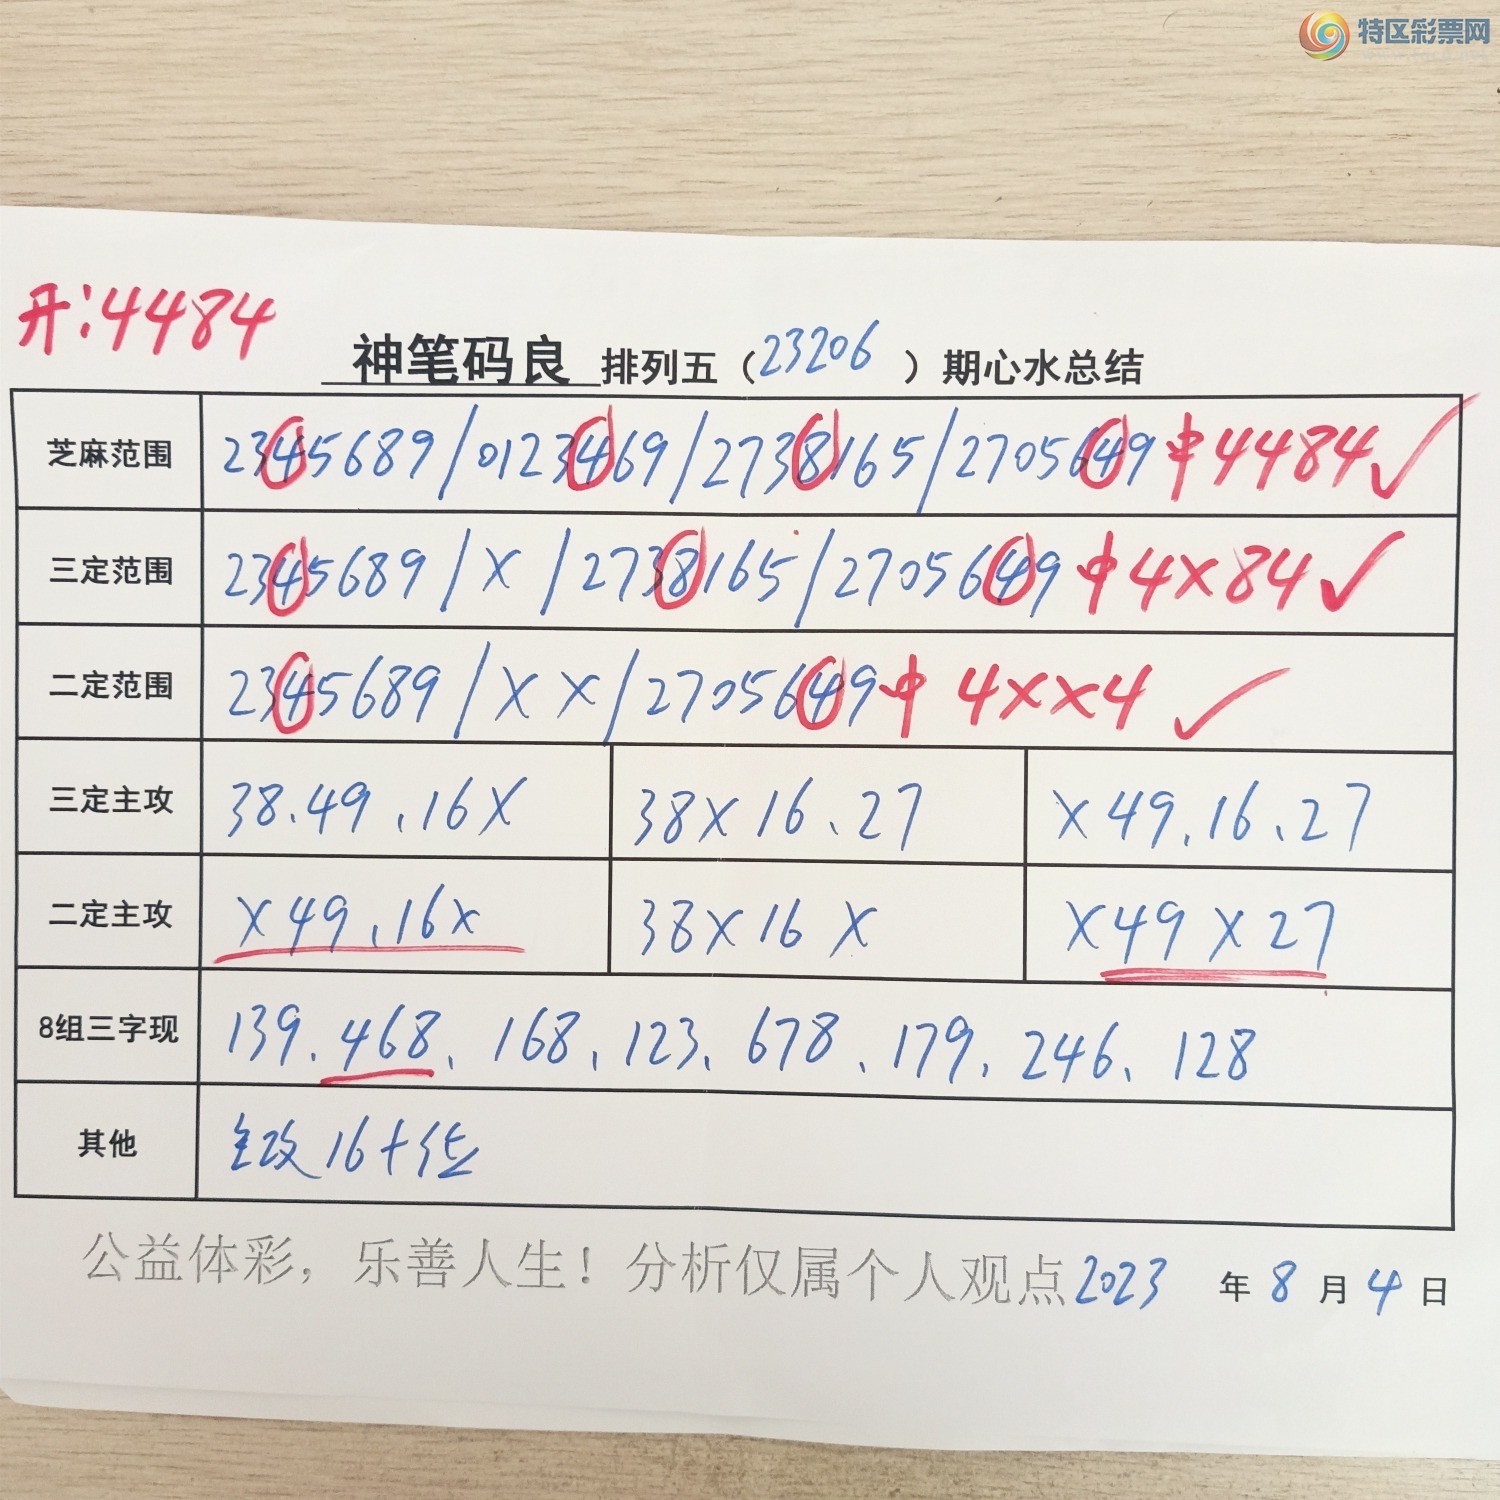 特区彩票网
开:4484
神笔码良 排列五（23206）期心水总结
芝麻范围 2345689/0123469/2738165/2705649 中4484✓
三定范围 2345689/X/2738165/2705649 中4X84✓
二定范围 2345689/XX/2705649 中4XX4✓
三定主攻 38.49、16X 38X16、27 X49、16、27
二定主攻 X49、16X 38X16X X49X27
8组三字现 139、468、168、123、678、179、246、128
其他 主攻16十位
公益体彩，乐善人生！分析仅属个人观点2023年8月4日